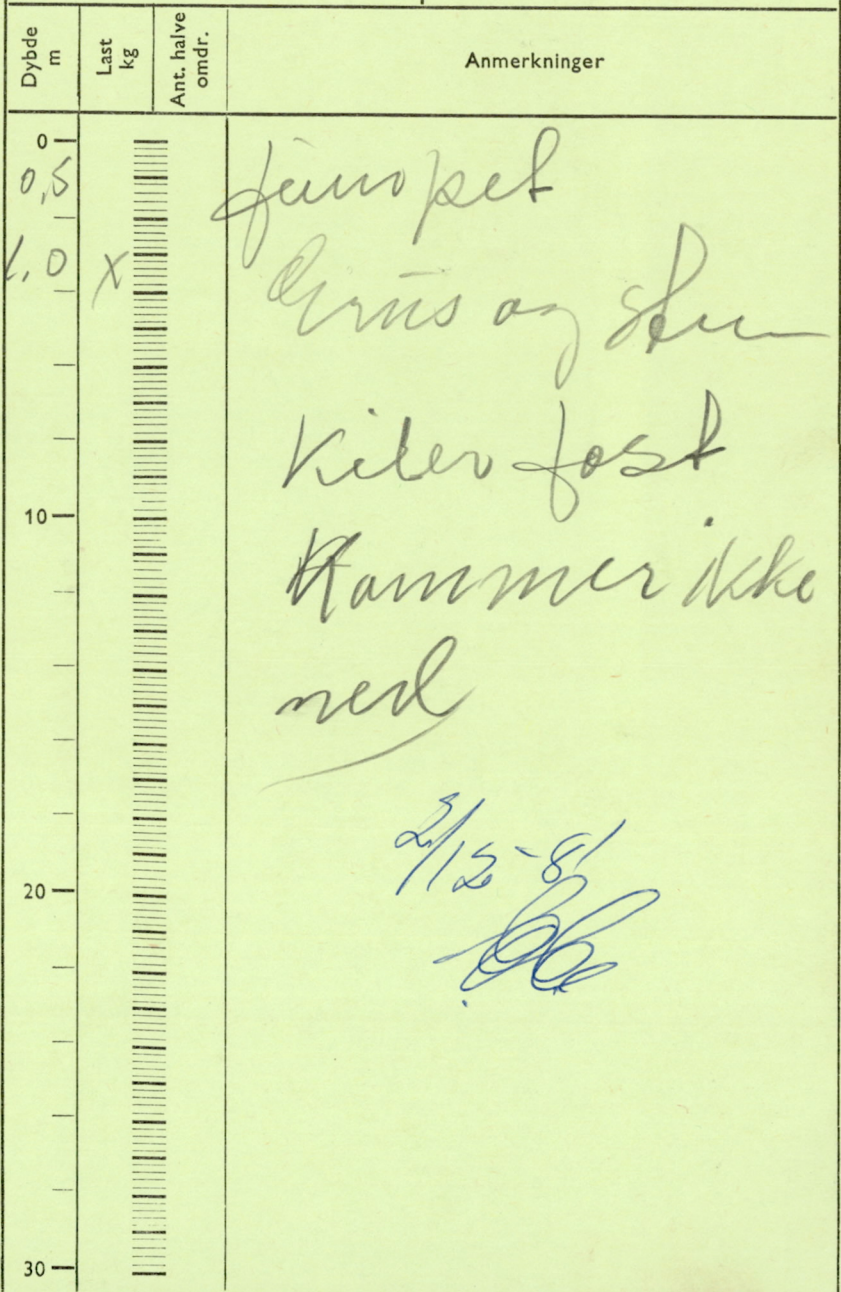 Dybde m Last kg Ant. halve omdr. Anmerkninger
0
0,5 pet
1,0 x Grus og sten
Kiler fast
10
Kommer ikke
ned
2/12-81
20
30